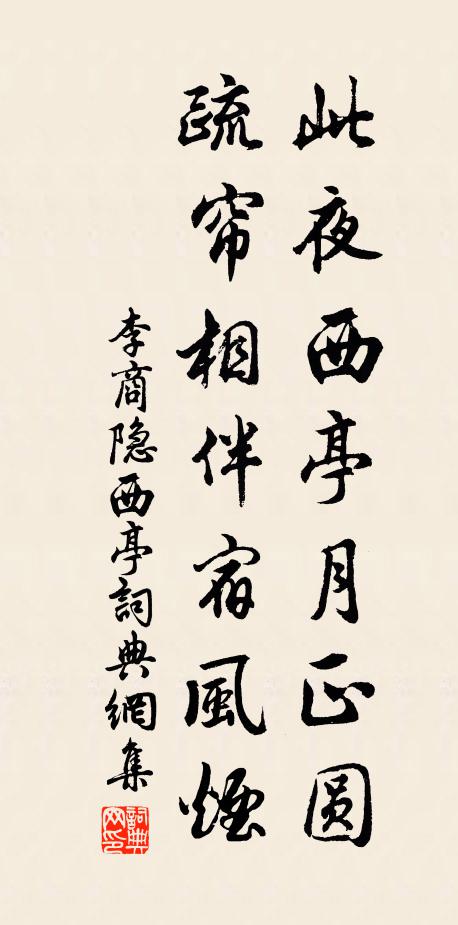 此夜西亭月正圆
疏帘相伴宿風煙
李商隐西亭詞典網集
詞典网印